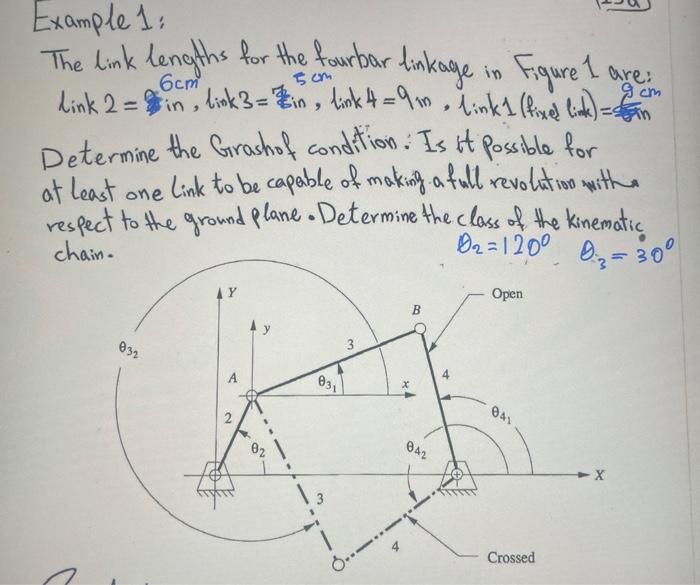 Example 1:
The link lengths for the fourbar linkage in Figure 1 are:
6cm 5 cm 9 cm
Link 2 = in, link 3 = in, link 4 = 9 in, link 1 (fixed link) = in
Determine the Grashof condition. Is it possible for
at least one link to be capable of making a full revolution with
respect to the ground plane. Determine the class of the kinematic
chain.
θ2 = 120° θ3 = 30°
Y
Open
B
y
θ32
3
A
θ31
x
4
2
θ41
θ2
θ42
X
3
4
Crossed